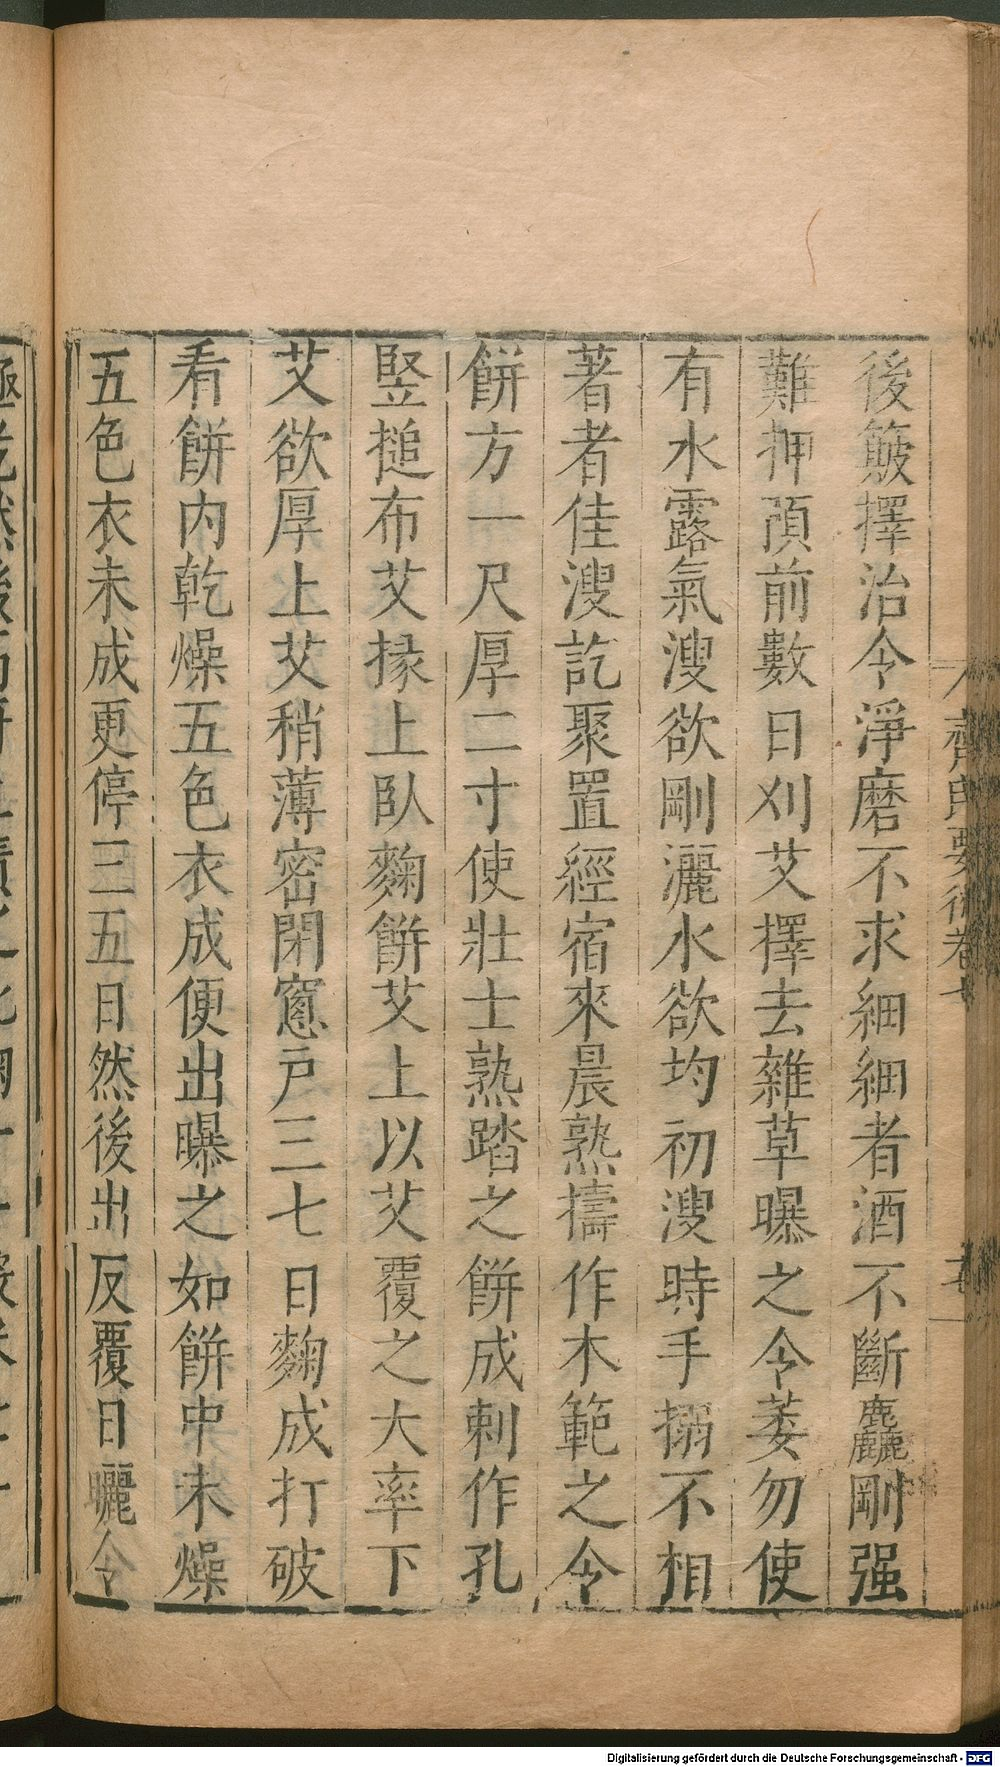 後簸擇治令淨磨不求細細者酒不斷麤剛强
難押預前數日刈艾擇去雜草曝之令萎勿使
有水露氣溲欲剛灑水欲均初溲時手搦不相
著者佳溲訖聚置經宿來晨熟擣作木範之令
餅方一尺厚二寸使壯士熟踏之餅成刺作孔
竪搥布艾掾上臥麴餅艾上以艾覆之大率下
艾欲厚上艾稍薄密閉窻戸三七日麴成打破
看餅内乾燥五色衣成便出曝之如餅中未燥
五色衣未成更停三五日然後出反覆日曬令
齊民要術卷七
Digitalisierung gefördert durch die Deutsche Forschungsgemeinschaft - DFG